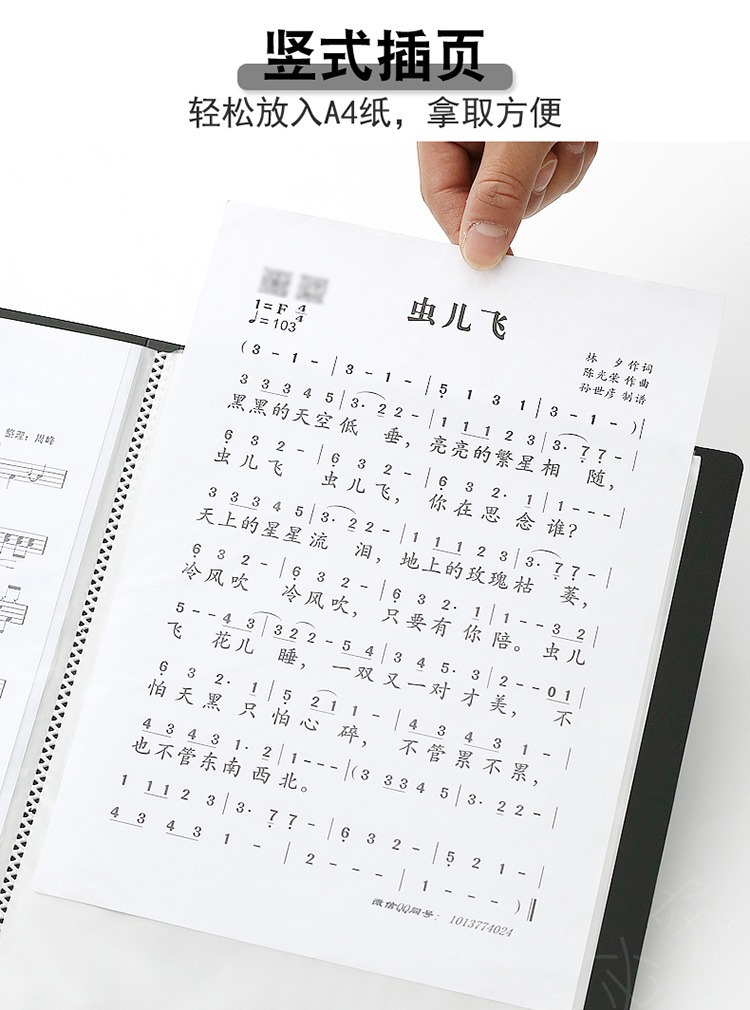 竖式插页
轻松放入A4纸，拿取方便
虫儿飞
1=F 4/4
♩=103
林 夕 作词
陈光荣 作曲
孙世彦 制谱
整理：周峰
(3 - 1 - | 3 - 1 - | 5 1 3 1 | 3 - 1 - )|
3 3 3 4 5 | 3· 2 2 - | 1 1 1 2 3 | 3· 7 7 - |
黑黑的天空低 垂，亮亮的繁星相 随，
6 3 2 - | 6 3 2 - | 6 3 2· 1 | 1 - - - |
虫儿飞 虫儿飞，你在思念谁？
3 3 3 4 5 | 3· 2 2 - | 1 1 1 2 3 | 3· 7 7 - |
天上的星星流 泪，地上的玫瑰枯 萎，
6 3 2 - | 6 3 2 - | 6 3 2· 1 | 1 - - 3 2 |
冷风吹 冷风吹，只要有你陪。虫儿
5 - - 4 3 | 3 2 2 - 5 4 | 4 3 4 5· 3 | 2 - - 0 1 |
飞 花儿 睡，一双又一对才美，不
6 3 2· 1 | 5 2 1 1 - | 4 3 4 3 1· 2 | 1 - - 1 |
怕天黑只怕心 碎，不管累不累，
4 3 4 3 1· 2 | 1 - - - |(3 3 3 4 5 | 3· 2 2 - |
也不管东南西北。
1 1 1 2 3 | 3· 7 7 - | 6 3 2 - | 5 2 1 - |
4 3 4 3 1 - | 2 - - - | 1 - - - )‖
微信QQ同号：1013774024